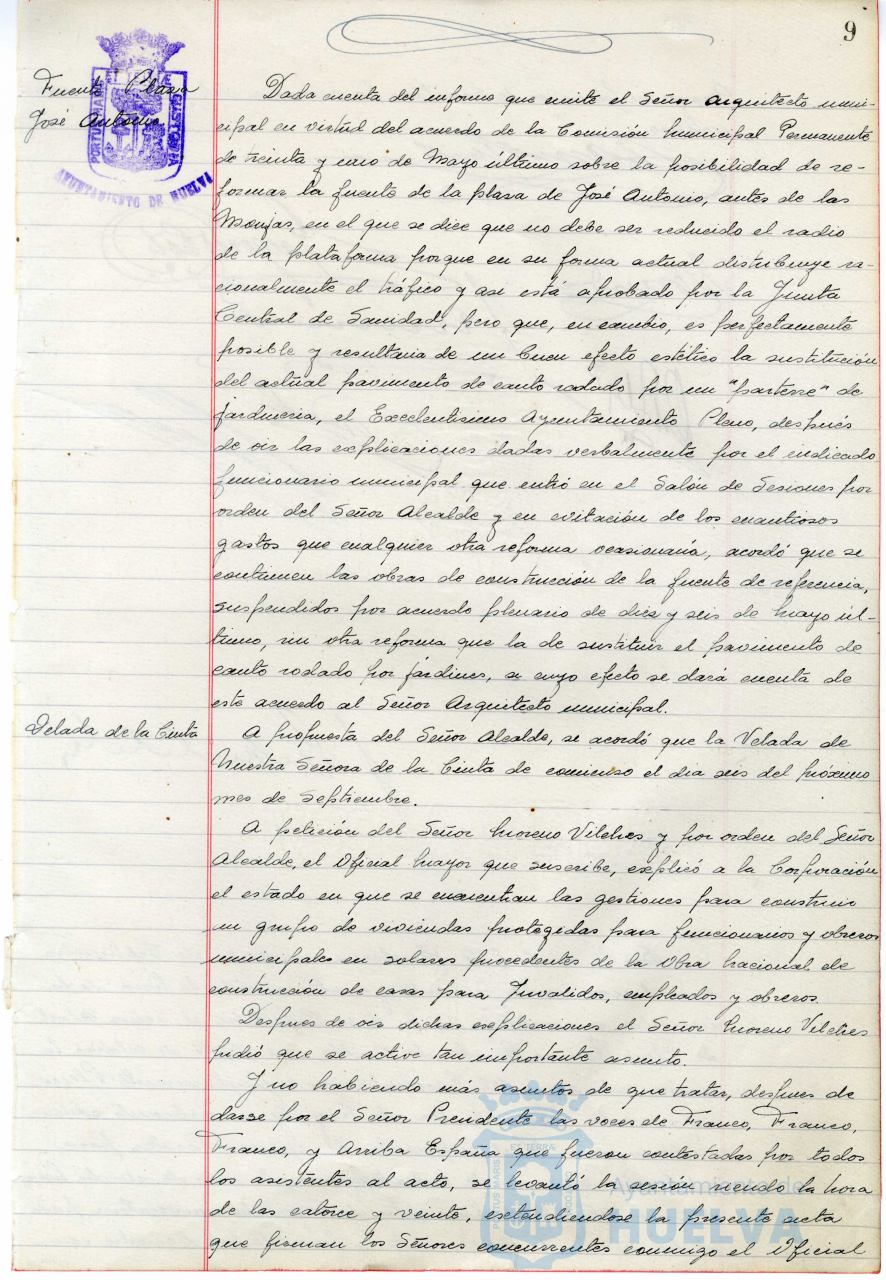 9
Fuente Plaza
José Antonio
PORTUS MARIS ET TERRE CUSTODIA
AYUNTAMIENTO DE HUELVA
Dada cuenta del informe que emite el Señor Arquitecto muni-
cipal en virtud del acuerdo de la Comisión Municipal Permanente
de treinta y uno de Mayo último sobre la posibilidad de re-
formar la fuente de la plaza de José Antonio, antes de las
Monjas, en el que se dice que no debe ser reducido el radio
de la plataforma porque en su forma actual distribuye ra-
cionalmente el tráfico y asi está aprobado por la Junta
Central de Sanidad, pero que, en cambio, es perfectamente
posible y resultaria de un buen efecto estético la sustitución
del actual pavimento de canto rodado por un "parterre" de
jardineria, el Excelentisimo Ayuntamiento Pleno, después
de oir las explicaciones dadas verbalmente por el indicado
funcionario municipal que entró en el Salón de Sesiones por
orden del Señor Alcalde y en evitación de los cuantiosos
gastos que cualquier otra reforma ocasionaría, acordó que se
continuen las obras de construcción de la fuente de referencia,
suspendidos por acuerdo plenario de diez y seis de Mayo úl-
timo, sin otra reforma que la de sustituir el pavimento de
canto rodado por jardines, a cuyo efecto se dará cuenta de
este acuerdo al Señor Arquitecto municipal.
Velada de la Cinta
A propuesta del Señor Alcalde, se acordó que la Velada de
Nuestra Señora de la Cinta de comienzo el dia seis del próximo
mes de Septiembre.
A petición del Señor Moreno Vilches y por orden del Señor
Alcalde, el Oficial Mayor que suscribe, explicó a la Corporación
el estado en que se encuentran las gestiones para construir
un grupo de viviendas protegidas para funcionarios y obreros
municipales en solares procedentes de la Obra Nacional de
construcción de casas para Invalidos, empleados y obreros.
Despues de oir dichas explicaciones el Señor Moreno Vilches
pidió que se active tan importante asunto.
Y no habiendo más asuntos de que tratar, despues de
darse por el Señor Presidente las voces de Franco, Franco,
Franco, y Arriba España que fueron contestadas por todos
los asistentes al acto, se levantó la sesión siendo la hora
de las catorce y veinte, extendiendose la presente acta
que firman los Señores concurrentes conmigo el Oficial
Ayuntamiento de
HUELVA